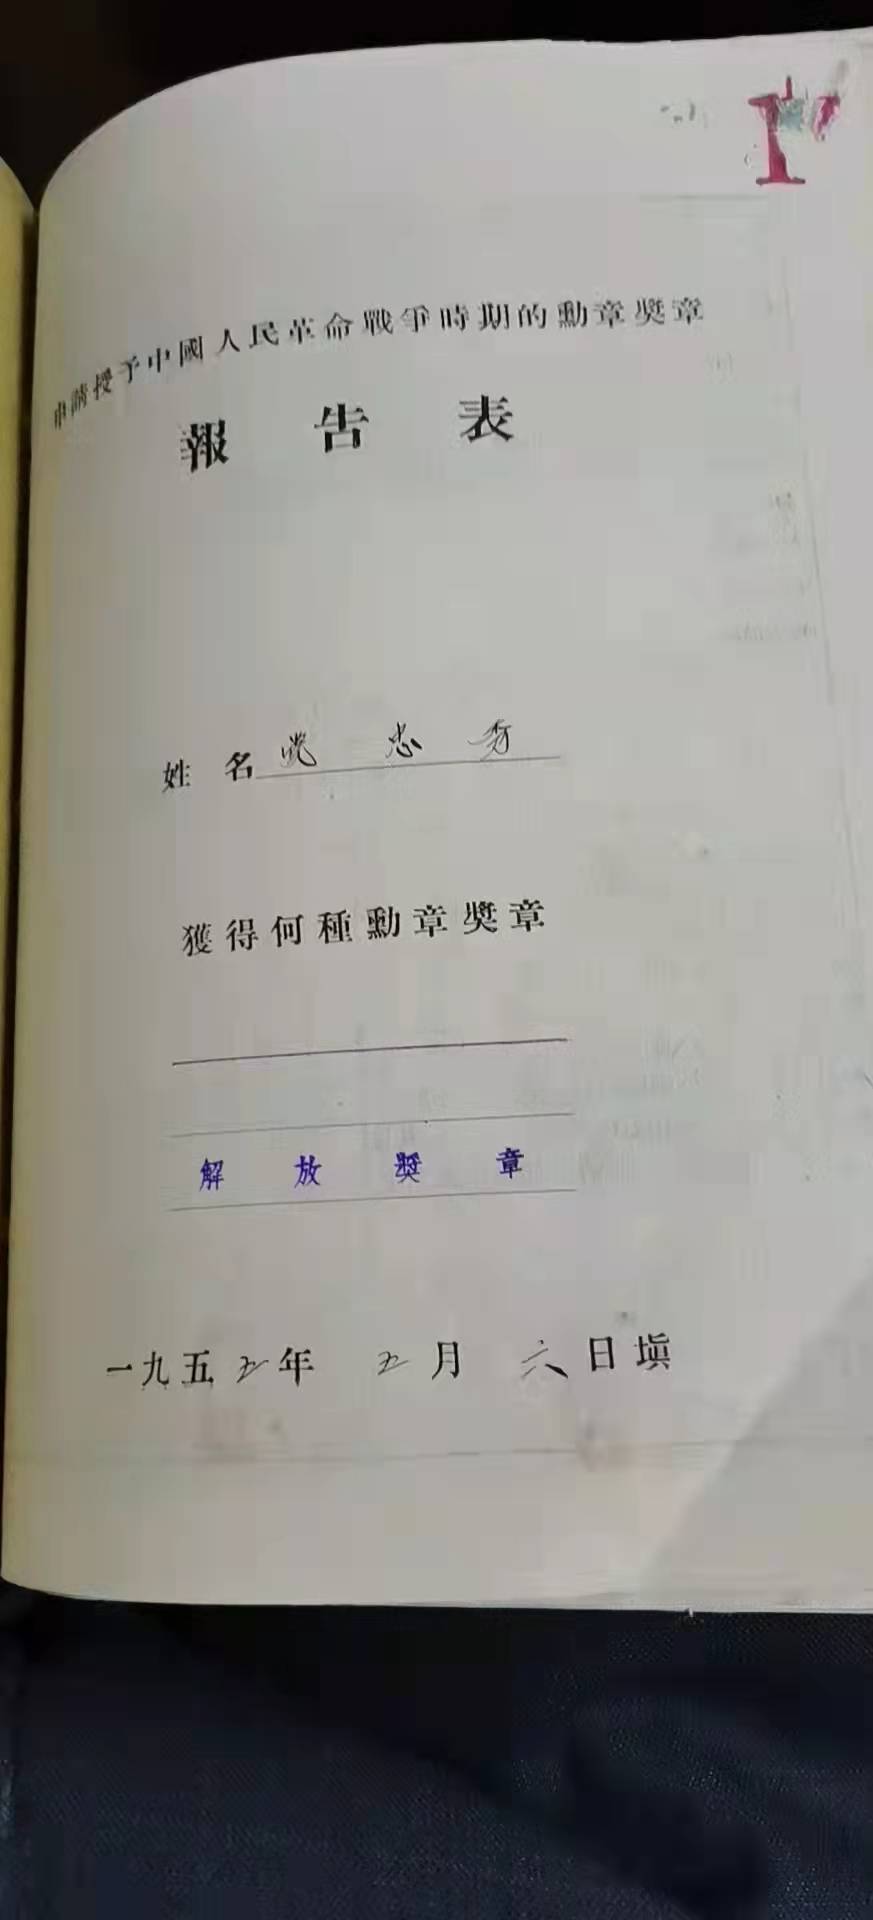 申請授予中國人民革命戰爭時期的勳章獎章
報告表
姓名 忠
獲得何種勳章獎章
解放獎章
一九五五年 五月 六日填